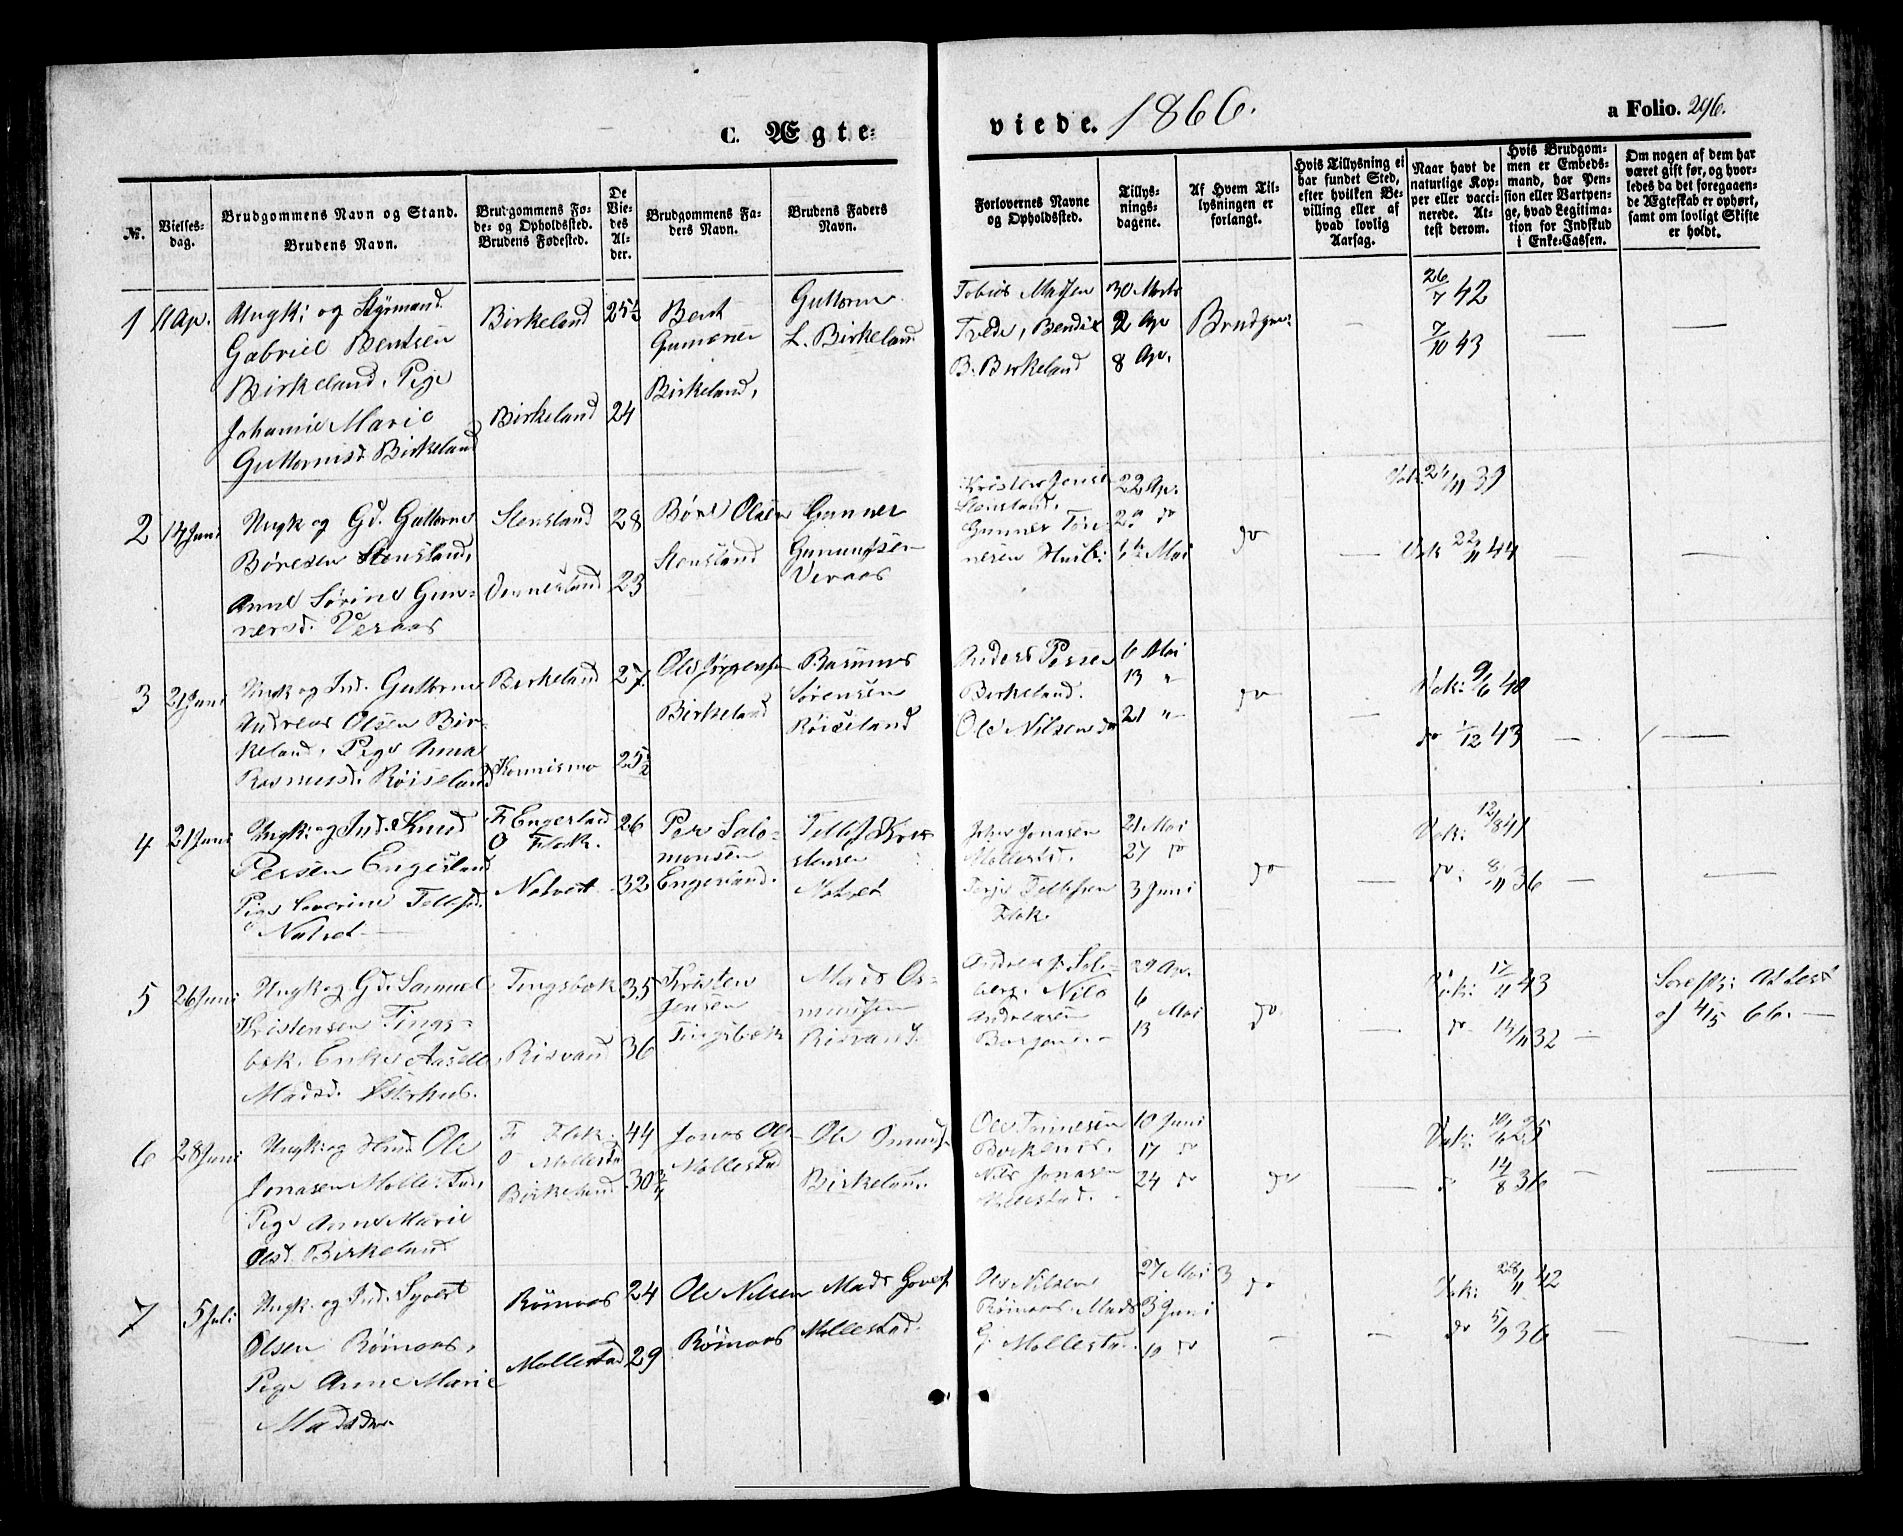 C. Ægte-
viede. 1866.
a Folio. 296.
No.
Vielses-
dag.
Brudgommens Navn og Stand.
Brudens Navn.
Brudgommens Fø-
de- og Opholdssted.
Brudens Fødested.
De
Vie-
des
Al-
der.
Brudgommens Fa-
ders Navn.
Brudens Faders
Navn.
Forlovernes Navne
og Opholdssted.
Tillys-
nings-
dagene.
Af Hvem Til-
lysningen er
forlangt.
Hvis Tillysning ei
har fundet Sted,
efter hvilken Be-
villing eller af
hvad lovlig
Aarsag.
Naar havt de
naturlige Kop-
per eller vacci-
nerede. At-
test derom.
Hvis Brudgom-
men er Embeds-
mand, har Pen-
sion eller Vartpen-
ge, hvad Legitima-
tion for Indskud
i Enke-Cassen.
Om nogen af dem har
været gift før, og hvor-
ledes da det foregaaen-
de Ægteskab er ophørt,
samt om lovligt Skifte
er holdt.
1
11 Ap.
Ungk: og Styrmand
Gabriel Bentsen
Birkeland. Pige
Johanne Marie
Guttormsd. Birkeland
Birkeland
Birkeland
25½
24
Bent
Gunnarsen
Birkeland.
Guttorm
L. Birkeland
Tobias
Tvede, Bendix
B. Birkeland
30 Marts
2 Ap
8 Ap.
Brudgom:
26/7 42
7/10 43
2
14 Juni
Ungk og Gd. Guttorm
Børesen Stensland,
Anne Sørine Gun-
nersd. Veraas
Stensland
Vennesland
28
23
Børe Olsen
Stensland
Gunner
Veraas
Kristen Jens:
Stensland.
Gunner
22 Ap.
29 do
Mai
do
Vak 24/11 39
Vak 22/11 44
3
21 Juni
Ungk og Ind. Guttorm
Andreas Olsen Bir-
keland, Pige Anna
Rasmusd. Røiseland
Birkeland
Konnismo
27.
25½
Ole Jørgensen
Birkeland
Rasmus
Sørensen
Røiseland
Anders Persen
Birkeland.
Ole Nilsen do
6 Mai
13 "
21 "
do
Vak: 9/6 40
do 1/12 43
4
21 Juni
Ungk: og Ind. Knud
Persen Engesland
Pige Severine Tellefsd.
Natvet
F Engesland
O Flak.
Natvet
26
32
Per Salo-
monsen
Engesland.
Tellef Kris-
tensen
Natvet
John Jonasen
Mollestad.
Terje Tellefsen
Flak.
21 Mai
27 do
3 Juni
do
Vak: 12/8 41
do 8/11 36
5
26 Juni
Ungk og Gd. Samuel
Kristensen Tings-
bek. Enke Aaselle
Madsd. Østerhus.
Tingsbek
Risvand
35
36
Kristen
Jensen
Tingsbek
Mads Os-
mundsen
Risvand
Andreas J. Sol-
berg. Nils
Andreasen
29 Ap.
6 Mai
13
do
Vak: 17/11 43
do 13/11 32
Skifte: Attest
af 4/5 66.
6
28 Juni
Ungk og Hmd Ole
Jonasen Mollestad,
Pige Anne Marie
Olsd. Birkeland
F Flak.
O Mollestad
Birkeland
44
30¾
Jonas Ols
Mollestad
Ole Omunds
Birkeland.
Ole Tønnesen
Birkenes.
Nils Jonasen
Mollestad.
10 Juni
17 do
24 do
do
Vak: 25
do 14/8 36
7
5 Juli
Ungk. og Ind. Syvert
Olsen Røinaas,
Pige Anne Marie
Madsd.
Røinaas
Mollestad
24
29
Ole Nilsen
Røinaas
Mads Govers
Mollestad.
Ole Nilsen
Røinaas. Mads
G. Mollestad.
27 Mai
3 Juni
10 do
do
Vak: 28/11 42
do 5/9 36